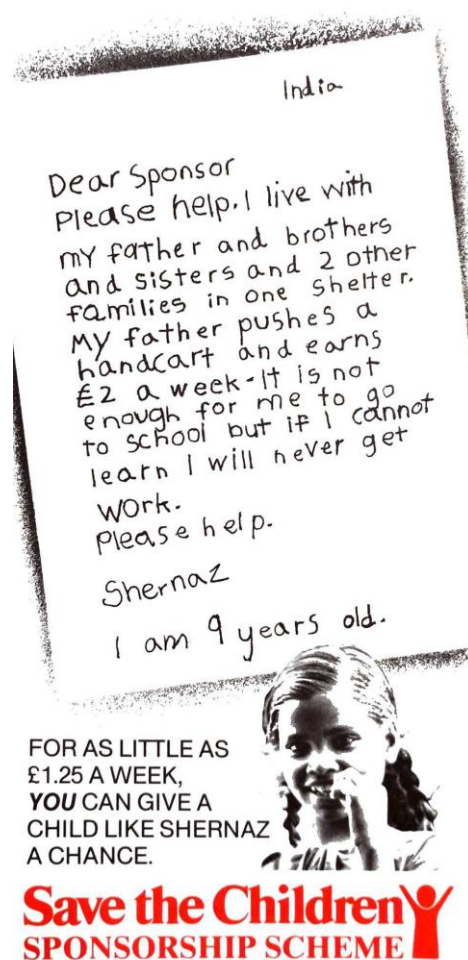 India
Dear Sponsor
Please help. I live with
my father and brothers
and sisters and 2 other
families in one shelter.
My father pushes a
handcart and earns
£2 a week-It is not
enough for me to go
to school but if I cannot
learn I will never get
work.
Please help.
Shernaz
I am 9 years old.
FOR AS LITTLE AS
£1.25 A WEEK,
YOU CAN GIVE A
CHILD LIKE SHERNAZ
A CHANCE.
Save the Children
SPONSORSHIP SCHEME